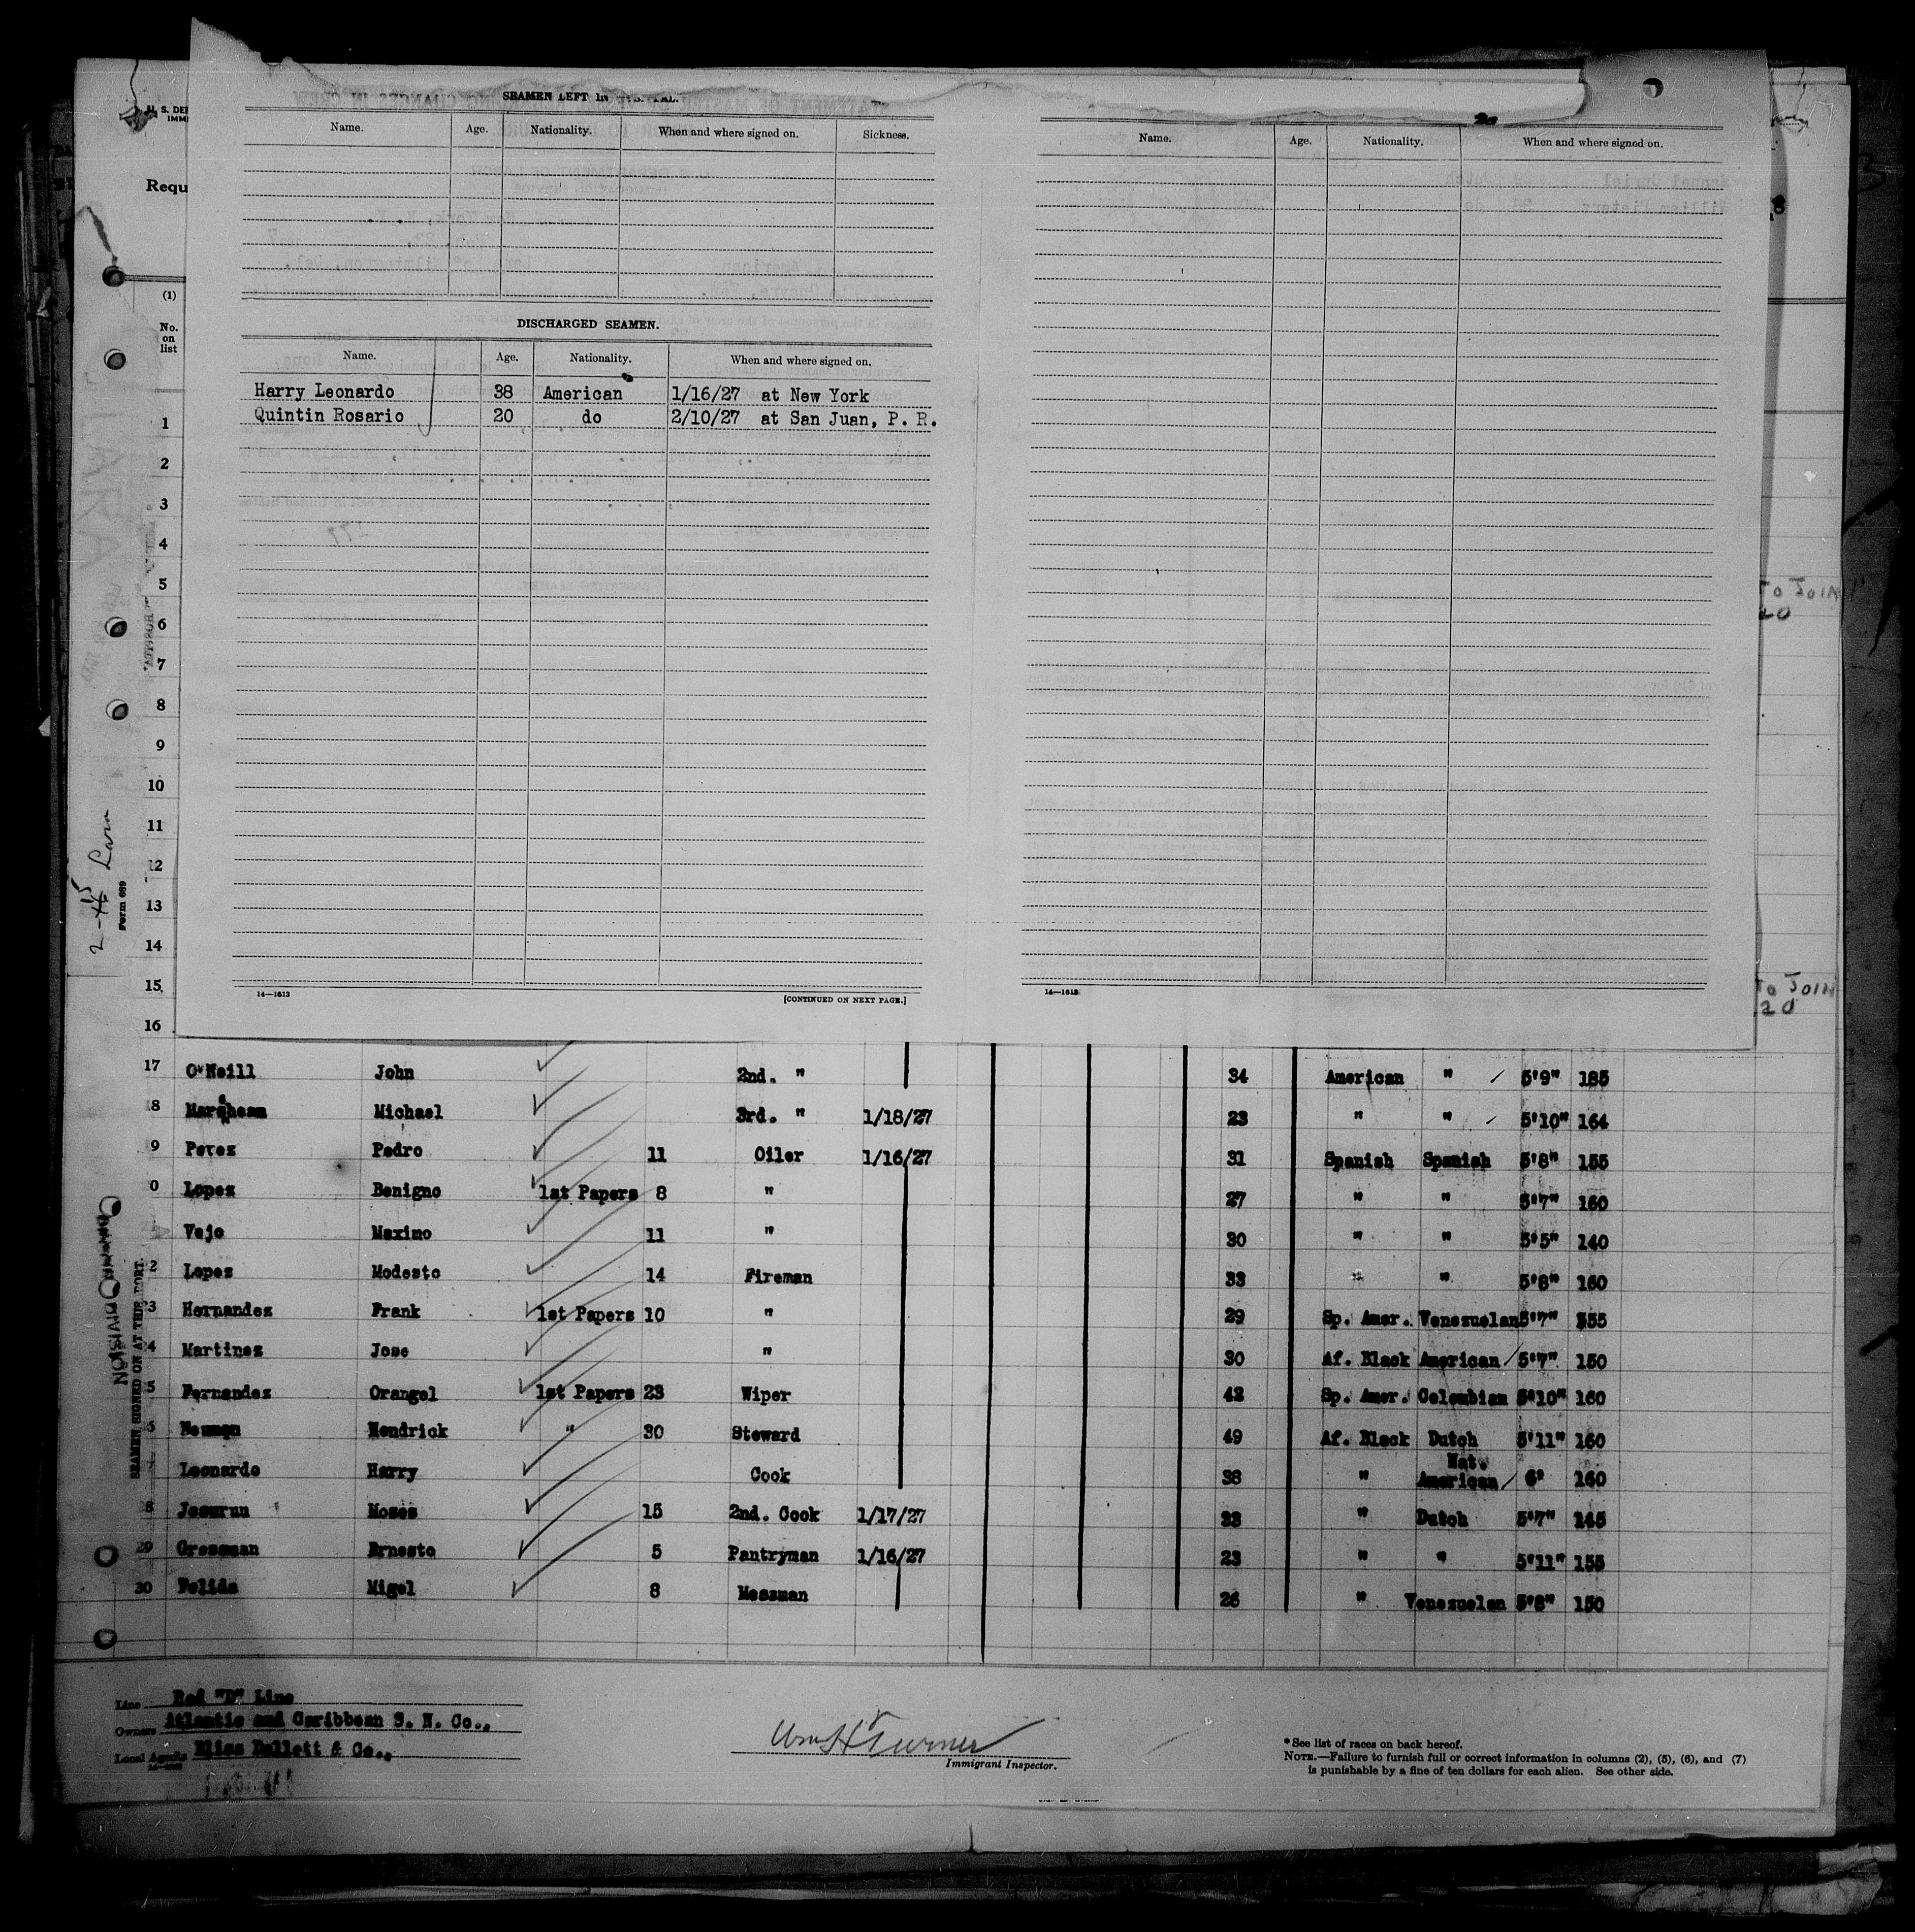 SEAMEN LEFT IN
Name. Age. Nationality. When and where signed on. Sickness.
Name. Age. Nationality. When and where signed on.
U. S. DE
IMMI
Requ
(1)
No.
on
list
DISCHARGED SEAMEN.
Name. Age. Nationality. When and where signed on.
Harry Leonardo 38 American 1/16/27 at New York
Quintin Rosario 20 do 2/10/27 at San Juan, P. R.
1
2
3
4
5
6
7
8
9
10
11
12
13
14
15
16
TO JOIN
20
TO JOIN
20
14—1613 [CONTINUED ON NEXT PAGE.]
14—1613
Form 689
17 O'Neill John 2nd. " 34 American " 5'9" 185
8 Michael 3rd. " 1/18/27 23 " " 5'10" 164
9 Perez Pedro 11 Oiler 1/16/27 31 Spanish Spanish 5'8" 155
0 Lopez Benigno 1st Papers 8 " 27 " " 5'7" 160
Vejo Maximo 11 " 30 " " 5'5" 140
2 Lopez Modesto 14 Fireman 33 " " 5'8" 160
3 Hernandez Frank 1st Papers 10 " 29 Sp. Amer. Venezuelan 5'7" 155
4 Martinez Jose " 30 Af. Black American 5'7" 150
5 Fernandez Orangel 1st Papers 23 Wiper 42 Sp. Amer. Colombian 5'10" 160
Hendrick " 30 Steward 49 Af. Black Dutch 5'11" 160
Leonardo Harry Cook 38 " Nat. American 6' 160
8 Jesurun Moses 15 2nd. Cook 1/17/27 33 " Dutch 5'7" 145
29 Gressman Ernesto 5 Pantryman 1/16/27 23 " " 5'11" 155
30 Felida Migel 8 Messman 26 " Venezuelan 5'8" 150
SEAMEN SIGNED ON AT THIS PORT.
Line Red "D" Line
Owners Atlantic and Caribbean S. N. Co.,
Local Agents Bliss Dallett & Co.,
Wm H Turner
Immigrant Inspector.
* See list of races on back hereof.
NOTE.—Failure to furnish full or correct information in columns (2), (5), (6), and (7)
is punishable by a fine of ten dollars for each alien. See other side.